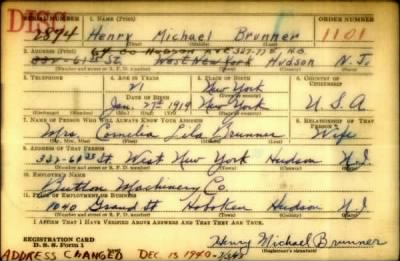 DISC
SERIAL NUMBER 1. NAME (Print) ORDER NUMBER
2874 Henry Michael Brunner 1101
(First) (Middle) (Last)
2. ADDRESS (Print)
61st St. West New York Hudson N.J.
(Number and street or R. F. D. number) (Town) (County) (State)
3. TELEPHONE 4. AGE IN YEARS 5. PLACE OF BIRTH 6. COUNTRY OF CITIZENSHIP
21 New York
DATE OF BIRTH
Jan. 27th 1919 New York U.S.A
7. NAME OF PERSON WHO WILL ALWAYS KNOW YOUR ADDRESS 8. RELATIONSHIP OF THAT PERSON
Mrs. Lila Brunner Wife
(Mr., Mrs., Miss) (First) (Middle) (Last)
9. ADDRESS OF THAT PERSON
61st St West New York Hudson N.J.
(Number and street or R. F. D. number) (Town) (County) (State)
10. EMPLOYER'S NAME
Machinery Co.
11. PLACE OF EMPLOYMENT OR BUSINESS
1040 Grand St Hoboken Hudson N.J.
(Number and street or R. F. D. number) (Town) (County) (State)
I AFFIRM THAT I HAVE VERIFIED ABOVE ANSWERS AND THAT THEY ARE TRUE.
REGISTRATION CARD
D. S. S. FORM 1 Henry Michael Brunner
(Registrant's signature)
ADDRESS CHANGED DEC 13 1940